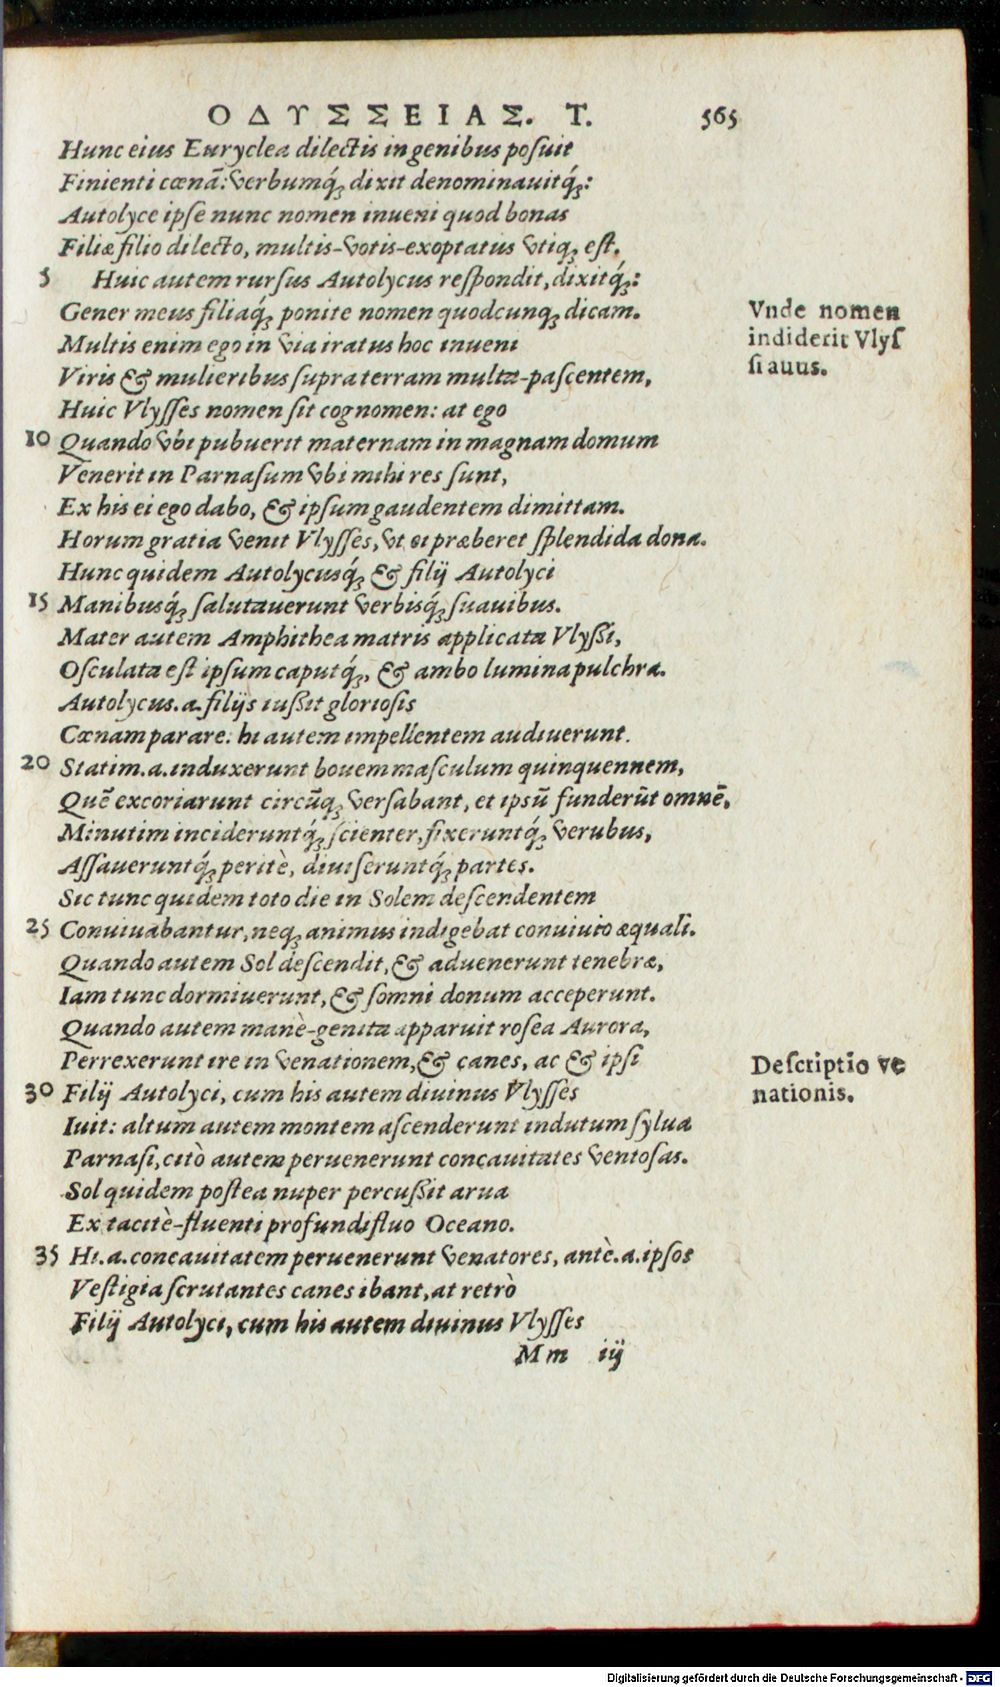 ΟΔΥΣΣΕΙΑΣ. Τ. 565
Hunc eius Euryclea dilectis in genibus posuit
Finienti cœnā: verbumq́ꝫ dixit denominauitq́ꝫ:
Autolyce ipse nunc nomen inueni quod bonas
Filiæ filio dilecto, multis-votis-exoptatus vtiqꝫ est.
5 Huic autem rursus Autolycus respondit, dixitq́ꝫ:
Gener meus filiaq́ꝫ ponite nomen quodcunqꝫ dicam.
Multis enim ego in via iratus hoc inueni
Viris & mulieribus supra terram multa-pascentem,
Huic Vlysses nomen sit cognomen: at ego
10 Quando vbi pubuerit maternam in magnam domum
Venerit in Parnasum vbi mihi res sunt,
Ex his ei ego dabo, & ipsum gaudentem dimittam.
Horum gratia venit Vlysses, vt ei præberet splendida dona.
Hunc quidem Autolycusq́ꝫ & filij Autolyci
15 Manibusq́ꝫ salutauerunt verbisq́ꝫ suauibus.
Mater autem Amphithea matris applicata Vlyssi,
Osculata est ipsum caputq́ꝫ, & ambo lumina pulchra.
Autolycus.a.filijs iussit gloriosis
Cœnam parare: hi autem impellentem audiuerunt.
20 Statim.a.induxerunt bouem masculum quinquennem,
Quē excoriarunt circūqꝫ versabant, et ipsū funderūt omnē,
Minutim incideruntq́ꝫ scienter, fixeruntq́ꝫ verubus,
Assaueruntq́ꝫ peritè, diuiseruntq́ꝫ partes.
Sic tunc quidem toto die in Solem descendentem
25 Conuiuabantur, neqꝫ animus indigebat conuiuio æquali.
Quando autem Sol descendit, & aduenerunt tenebræ,
Iam tunc dormiuerunt, & somni donum acceperunt.
Quando autem manè-genita apparuit rosea Aurora,
Perrexerunt ire in venationem, & canes, ac & ipsi
30 Filij Autolyci, cum his autem diuinus Vlysses
Iuit: altum autem montem ascenderunt indutum sylua
Parnasi, citò autem peruenerunt concauitates ventosas.
Sol quidem postea nuper percussit arua
Ex tacitè-fluenti profundifluo Oceano.
35 Hi.a.concauitatem peruenerunt venatores, antè.a.ipsos
Vestigia scrutantes canes ibant, at retrò
Filij Autolyci, cum his autem diuinus Vlysses
Mm iij
Vnde nomen
indiderit Vlys
si auus.
Descriptio ve
nationis.
Digitalisierung gefördert durch die Deutsche Forschungsgemeinschaft - DFG